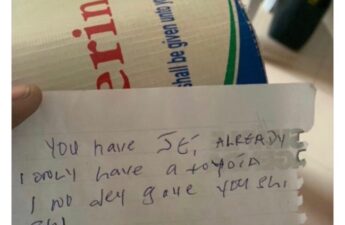 erin
shall be given unto y
You have JE, ALREADY
I only have a toyota
I no dey gave you shi
shi